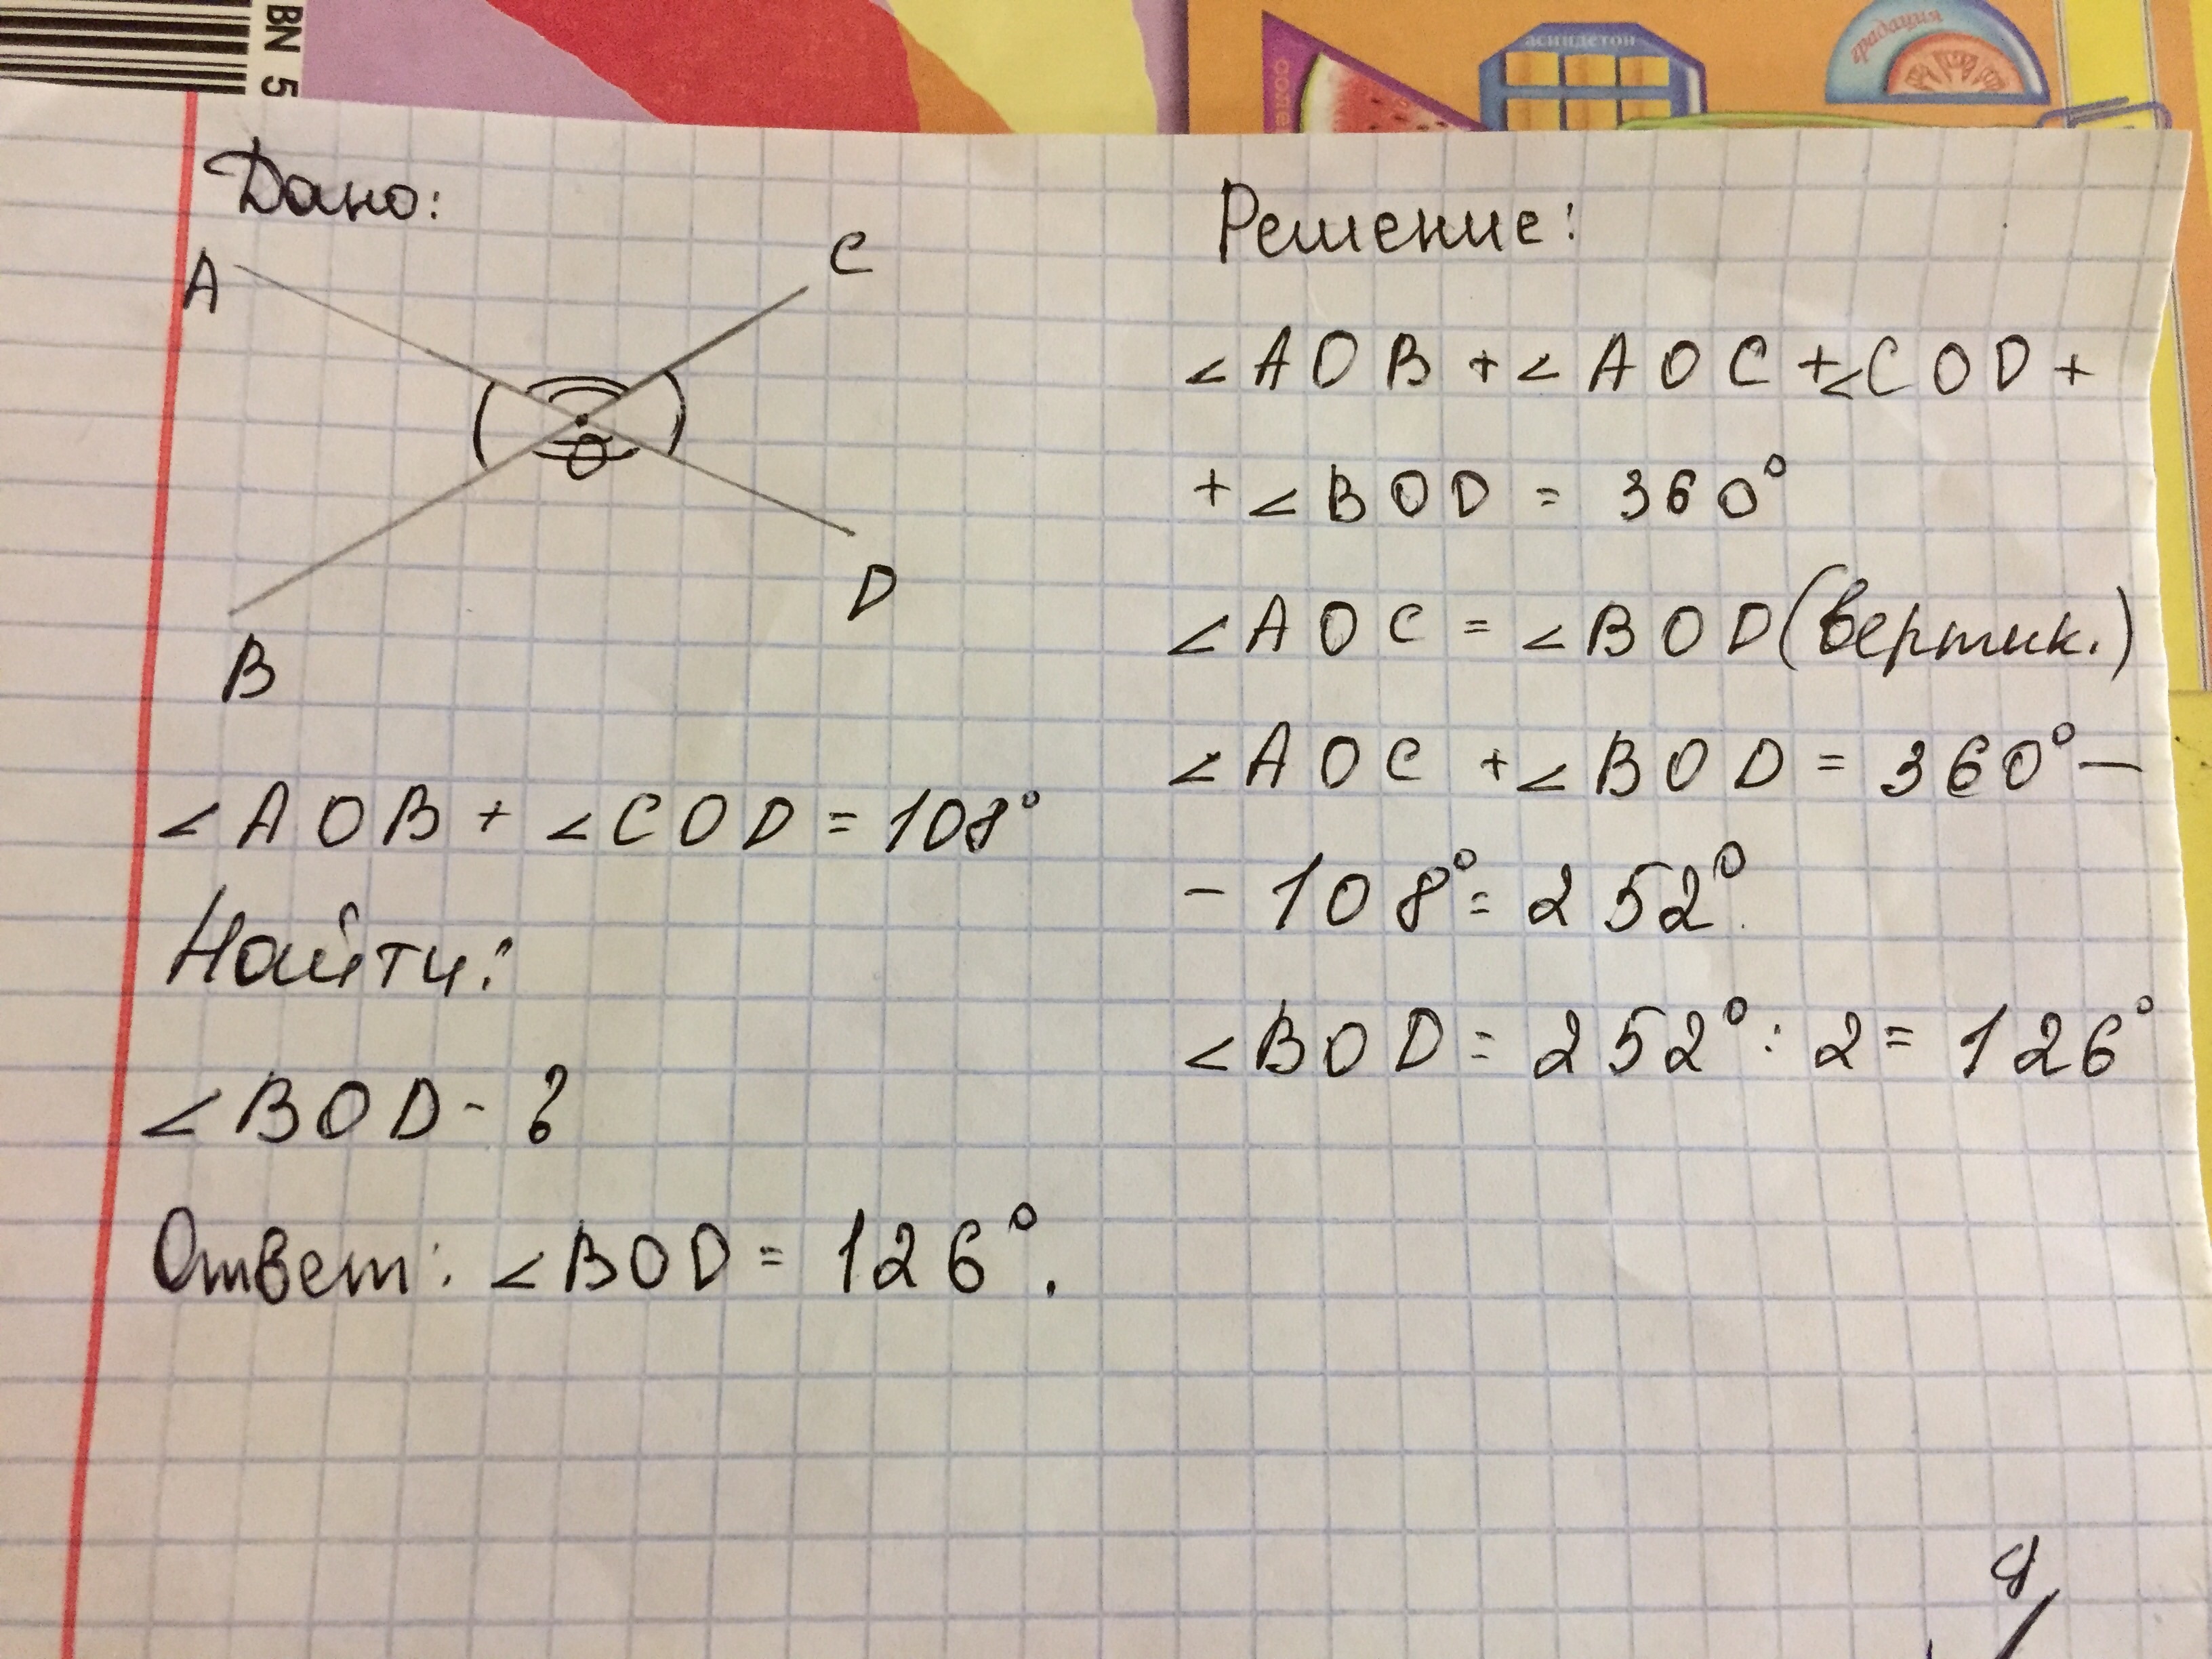 BN 5
асиндетон
градация
Дано:
A
C
O
B
D
∠AOB + ∠COD = 108°
Найти:
∠BOD - ?
Ответ: ∠BOD = 126°.
Решение:
∠AOB + ∠AOC + ∠COD +
+ ∠BOD = 360°
∠AOC = ∠BOD (вертик.)
∠AOC + ∠BOD = 360° –
- 108° = 252°.
∠BOD = 252° : 2 = 126°